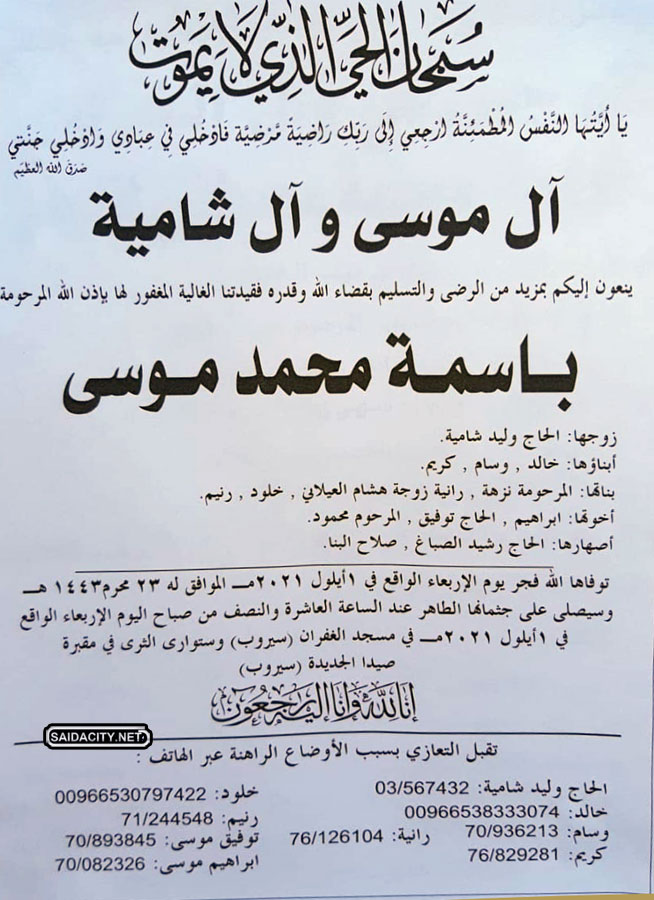 سُبْحَانَ الحَيِّ الَّذِي لَا يَمُوت
يَا أَيَّتُهَا النَّفْسُ الْمُطْمَئِنَّةُ ارْجِعِي إِلَى رَبِّكِ رَاضِيَةً مَّرْضِيَّة فَادْخُلِي فِي عِبَادِي وَادْخُلِي جَنَّتِي
صَدَقَ الله العَظِيم
آل موسى و آل شامية
ينعون إليكم بمزيد من الرضى والتسليم بقضاء الله وقدره فقيدتنا الغالية المغفور لها بإذن الله المرحومة
باسمة محمد موسى
زوجها: الحاج وليد شامية.
أبناؤها: خالد , وسام , كريم.
بناتها: المرحومة نزهة , رانية زوجة هشام العيلاني , خلود , رنيم.
أخوتها: ابراهيم , الحاج توفيق , المرحوم محمود.
أصهارها: الحاج رشيد الصباغ , صلاح البنا.
توفاها الله فجر يوم الإربعاء الواقع في ١أيلول ٢٠٢١مـ الموافق له ٢٣ محرم١٤٤٣ هـ
وسيصلى على جثمانها الطاهر عند الساعة العاشرة والنصف من صباح اليوم الإربعاء الواقع
في ١أيلول ٢٠٢١مـ في مسجد الغفران (سيروب) وستوارى الثرى في مقبرة
صيدا الجديدة (سيروب)
إنا لله وإنا إليه راجعون
SAIDACITY.NET
تقبل التعازي بسبب الأوضاع الراهنة عبر الهاتف :
الحاج وليد شامية: 03/567432 خلود: 00966530797422
خالد: 00966538333074 رنيم: 71/244548
وسام: 70/936213 رانية: 76/126104 توفيق موسى: 70/893845
كريم: 76/829281 ابراهيم موسى: 70/082326